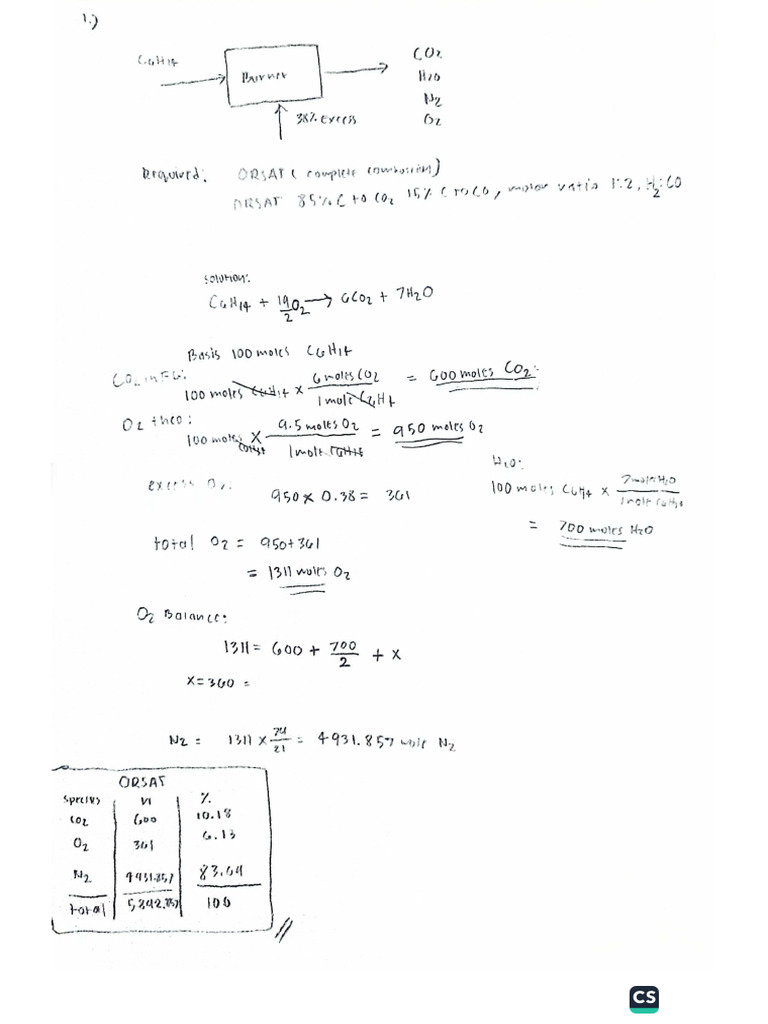 1.)
C6H14
Burner
CO2
H2O
N2
O2
38% excess
Required: ORSAT ( complete combustion)
ORSAT 85% C to CO2 15% C to CO, molar ratio 1:2, H2:CO
Solution:
C6H14 + 19/2 O2 → 6CO2 + 7H2O
Basis 100 moles C6H14
CO2 in FG:
100 moles C6H14 × 6 moles CO2 / 1 mole C6H14 = 600 moles CO2
O2 theo:
100 moles C6H14 × 9.5 moles O2 / 1 mole C6H14 = 950 moles O2
H2O:
100 moles C6H14 × 7 moles H2O / 1 mole C6H14
= 700 moles H2O
excess O2:
950 × 0.38 = 361
total O2 = 950+361
= 1311 moles O2
O2 Balance:
1311 = 600 + 700/2 + x
x=360 =
N2 = 1311 × 79/21 = 4931.857 mole N2
ORSAT
Species n %
CO2 600 10.18
O2 361 6.13
N2 4931.857 83.69
total 5892.857 100
CS